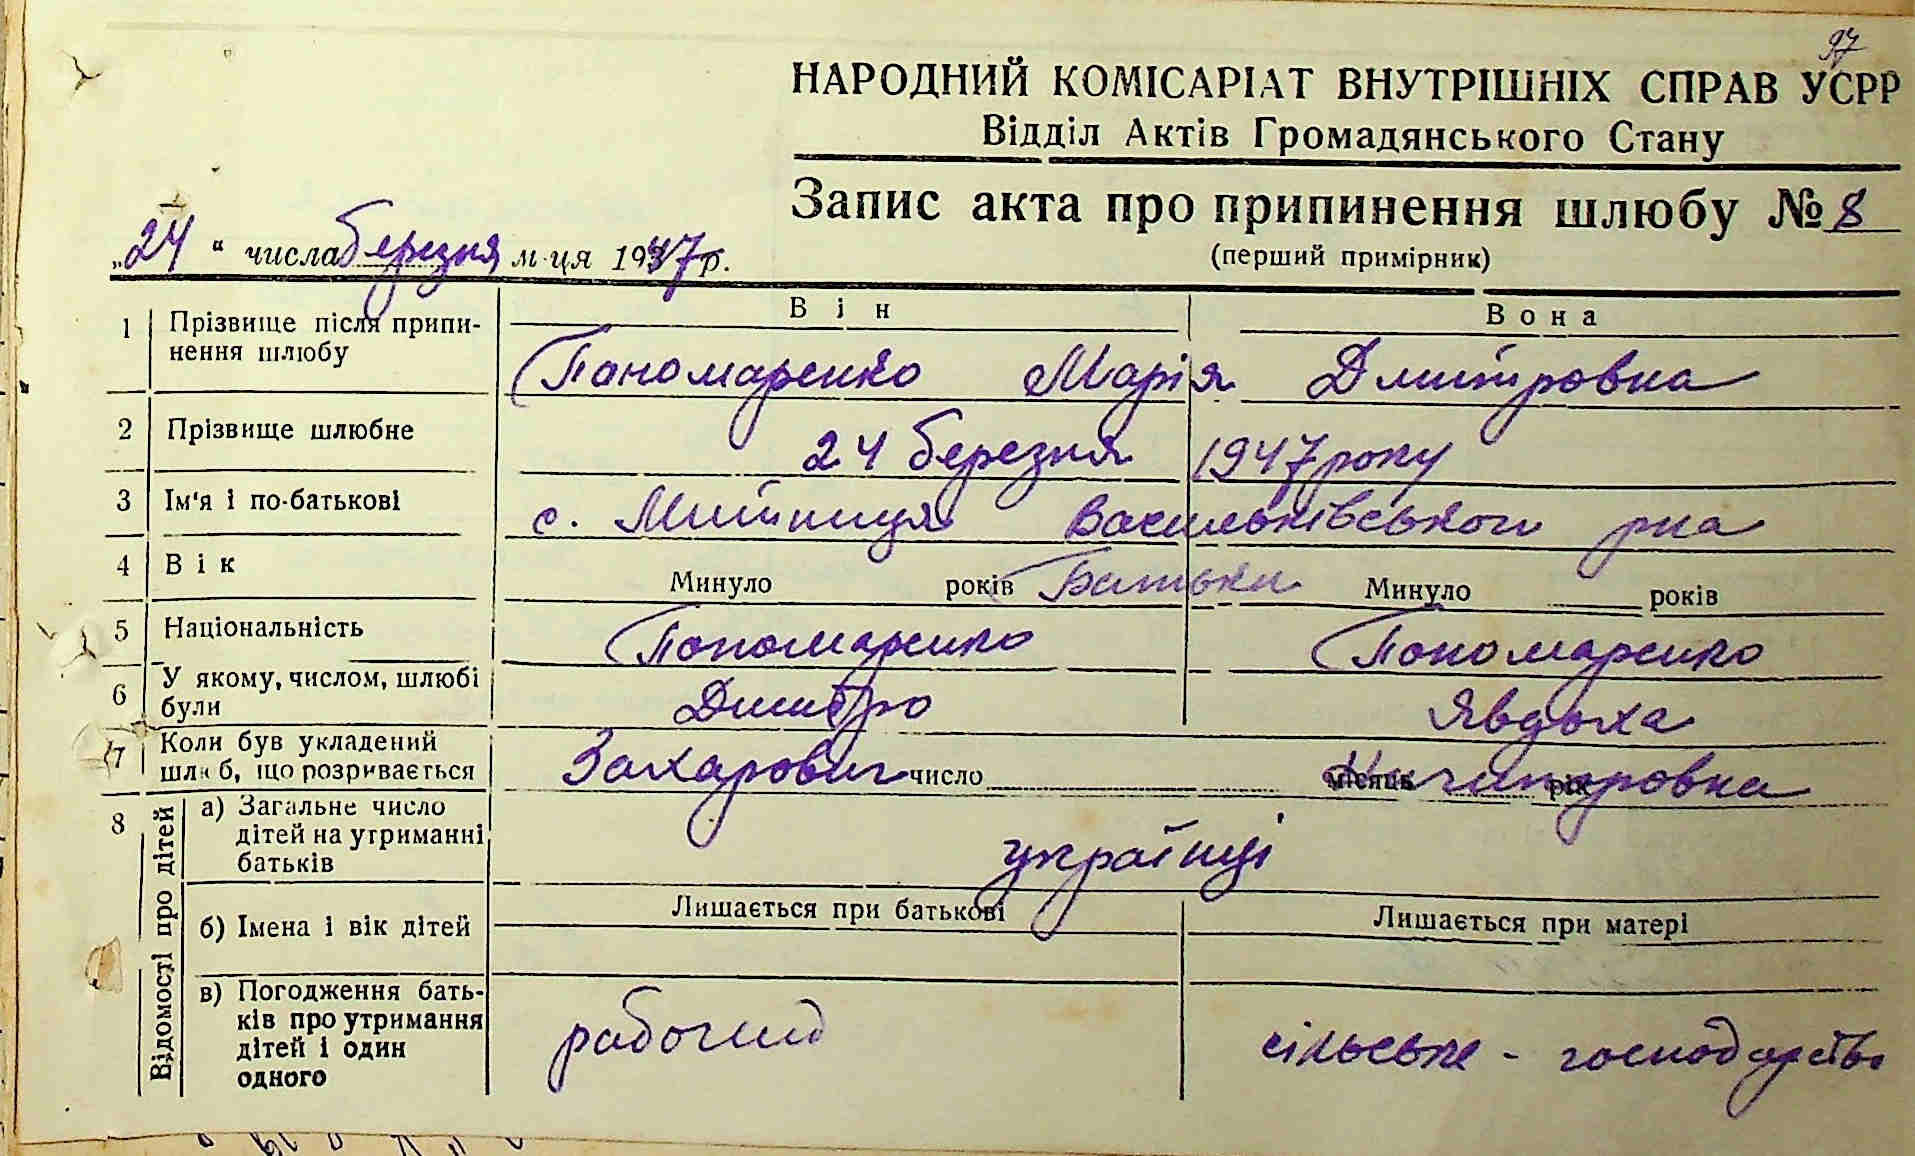 97
НАРОДНИЙ КОМІСАРІАТ ВНУТРІШНІХ СПРАВ УСРР
Відділ Актів Громадянського Стану
Запис акта про припинення шлюбу № 8
(перший примірник)
„24" числа березня м-ця 1947 р.
Він Вона
1 Прізвище після припи-
нення шлюбу
Пономаренко Марія Дмитровна
2 Прізвище шлюбне 24 березня 1947 року
3 Ім'я і по-батькові с. Митниця Васильківського рна
4 Вік Минуло років Батьки Минуло років
5 Національність Пономаренко Пономаренко
6 У якому, числом, шлюбі
були
Дмитро Явдоха
7 Коли був укладений
шлюб, що розривається
Захарович число місяць Ничипоровна рік
8 Відомості про дітей
а) Загальне число
дітей на утриманні
батьків
українці
б) Імена і вік дітей Лишається при батькові Лишається при матері
в) Погодження бать-
ків про утримання
дітей і один
одного
рабочий сільське - господарство